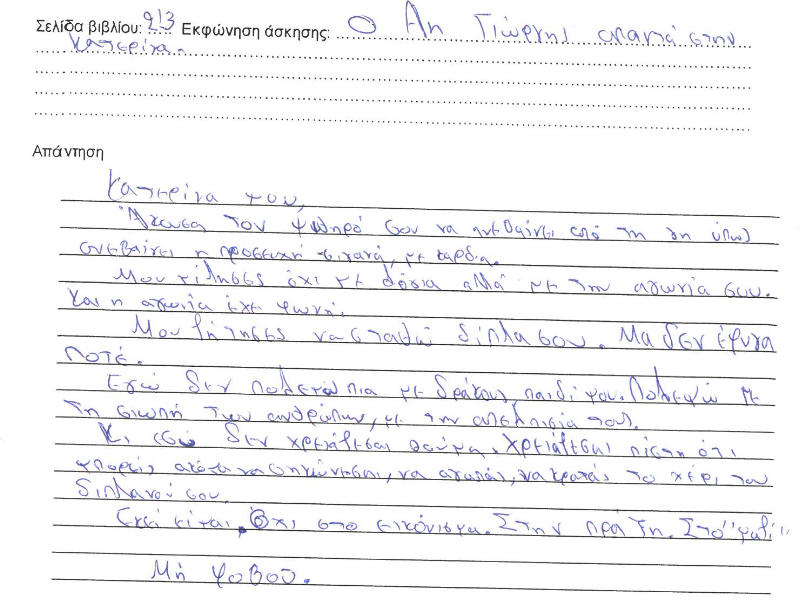 Σελίδα βιβλίου: 213 Εκφώνηση άσκησης: Ο Αη Γιώργης απαντά στην
Κατερίνα.
Απάντηση
Κατερίνα μου,
Άκουσα τον ψίθηρό σου να ανεβαίνει από τη γη όπως
ανεβαίνει η προσευχή σιγανά, με καρδιά.
Μου μίλησες όχι με λόγια αλλά με την αγωνία σου.
Και η αγωνία έχει φωνή.
Μου ζήτησες να σταθώ δίπλα σου. Μα δεν έφυγα
ποτέ.
Εγώ δεν πολεμώ πια με δράκους, παιδί μου. Πολεμώ με
τη σιωπή των ανθρώπων, με την απελπισία τους.
Κι εσύ δεν χρειάζεσαι θαύμα. Χρειάζεσαι πίστη ότι
μπορείς ακόμα να σηκώνεσαι, να αγαπάς, να κρατάς το χέρι του
διπλανού σου.
Εκεί είμαι. Όχι στο εικόνισμα. Στην πράξη. Στο "μαζί"
Μη φοβού.